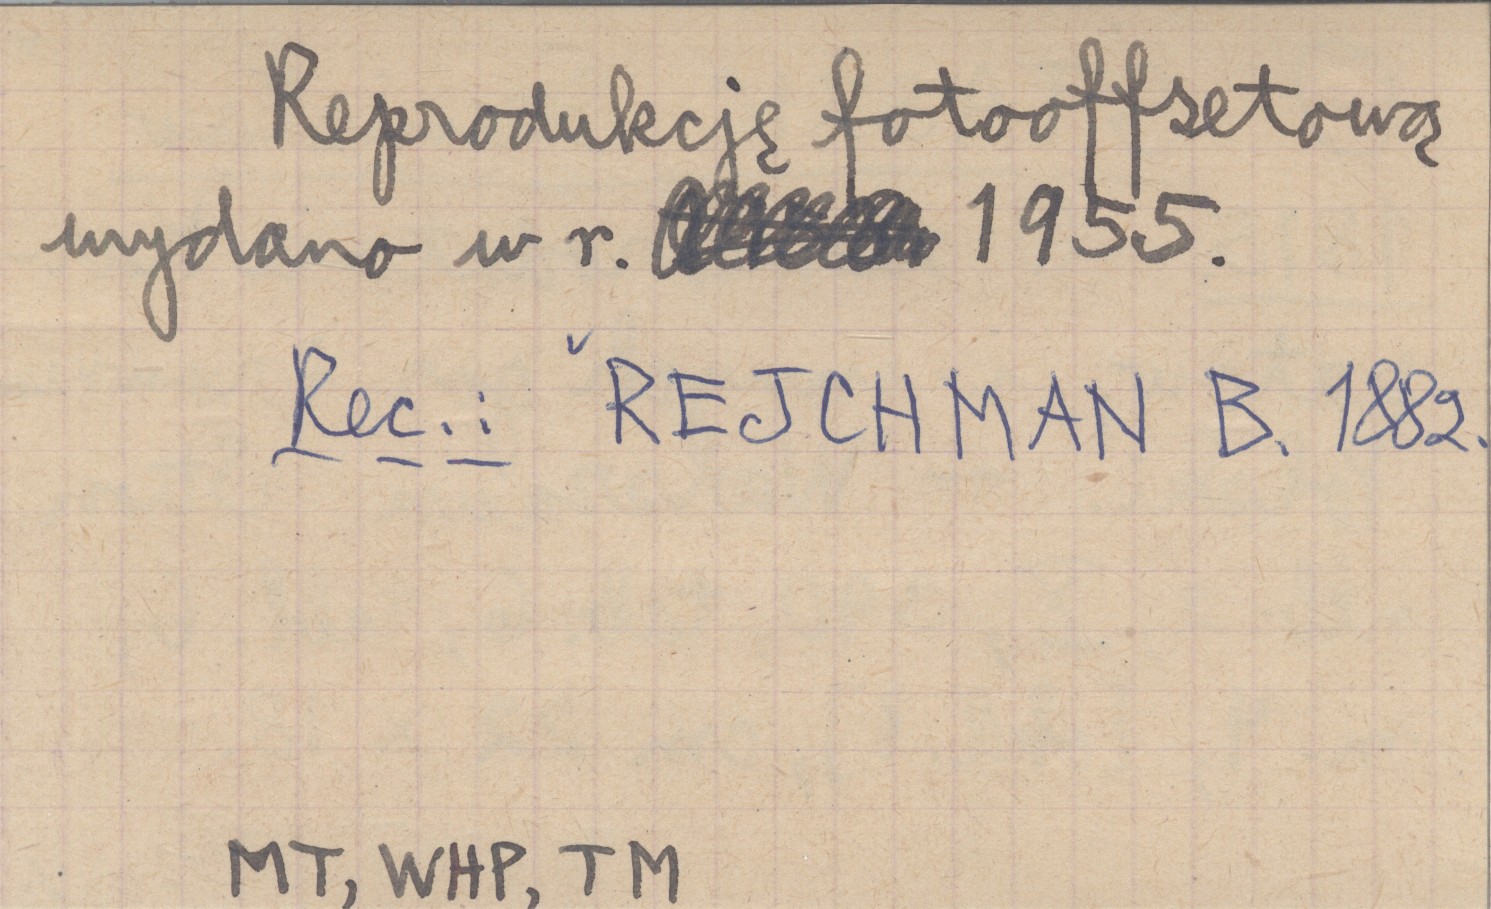 Reprodukcję fotooffsetową
wydano w r. 1955.
Rec.: ˅REJCHMAN B. 1882.
MT, WHP, TM